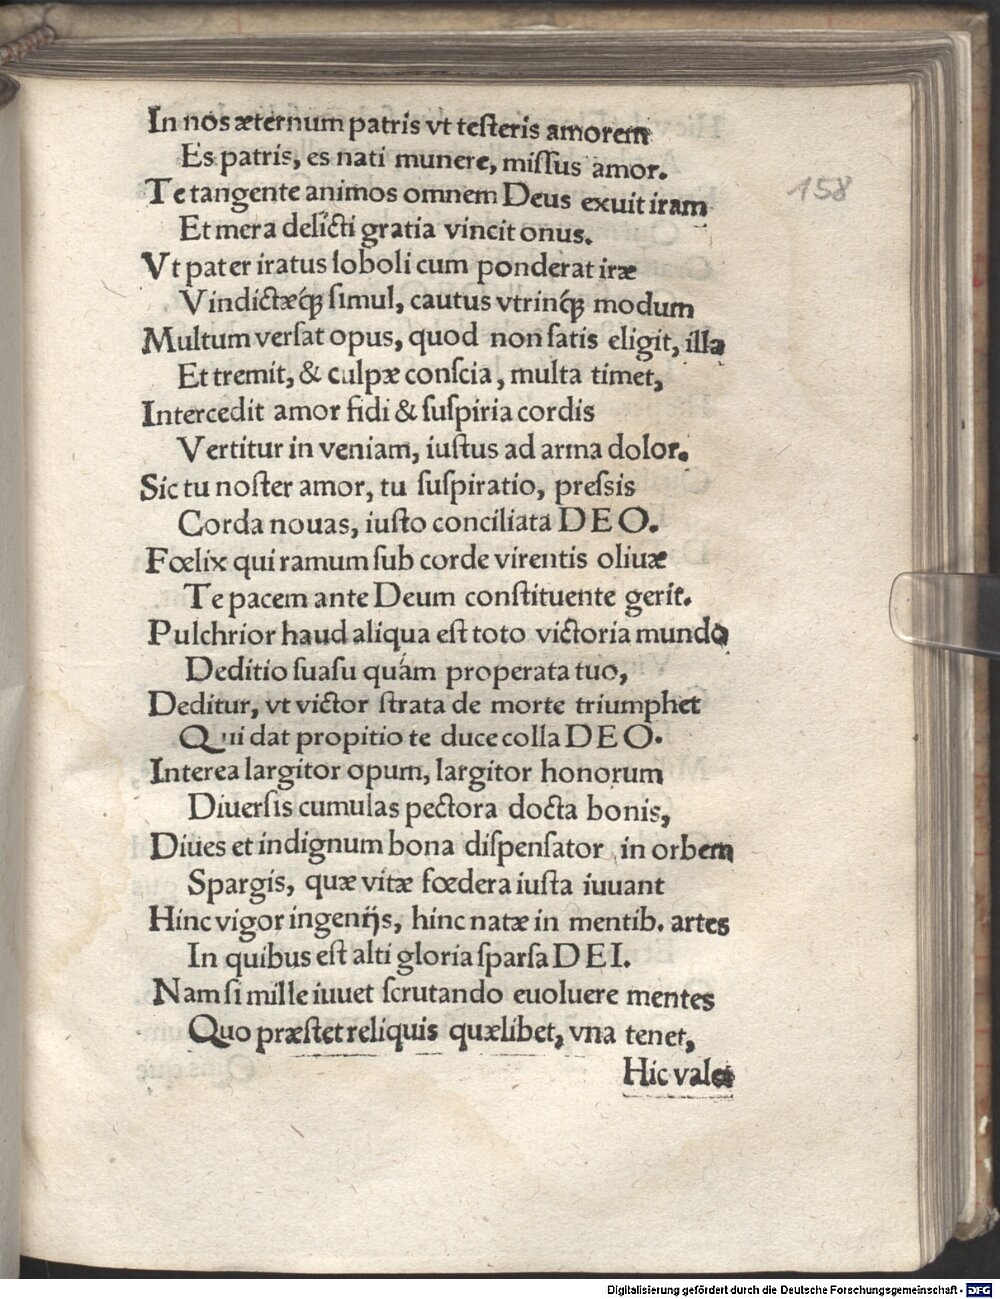 In nos æternum patris vt testeris amorem
Es patris, es nati munere, missus amor.
Te tangente animos omnem Deus exuit iram
158
Et mera delicti gratia vincit onus.
Vt pater iratus soboli cum ponderat iræ
Vindictæq́; simul, cautus vtrinq́; modum
Multum versat opus, quod non satis eligit, illa
Et tremit, & culpæ conscia, multa timet,
Intercedit amor fidi & suspiria cordis
Vertitur in veniam, iustus ad arma dolor.
Sic tu noster amor, tu suspiratio, pressis
Corda nouas, iusto conciliata DEO.
Fœlix qui ramum sub corde virentis oliuæ
Te pacem ante Deum constituente gerit.
Pulchrior haud aliqua est toto victoria mundo
Deditio suasu quám properata tuo,
Deditur, vt victor strata de morte triumphet
Qui dat propitio te duce colla DEO.
Interea largitor opum, largitor honorum
Diuersis cumulas pectora docta bonis,
Diues et indignum bona dispensator in orbem
Spargis, quæ vitæ fœdera iusta iuuant
Hinc vigor ingenijs, hinc natæ in mentib. artes
In quibus est alti gloria sparsa DEI.
Nam si mille iuuet scrutando euoluere mentes
Quo præstet reliquis quælibet, vna tenet,
Hic valet
Digitalisierung gefördert durch die Deutsche Forschungsgemeinschaft - DFG